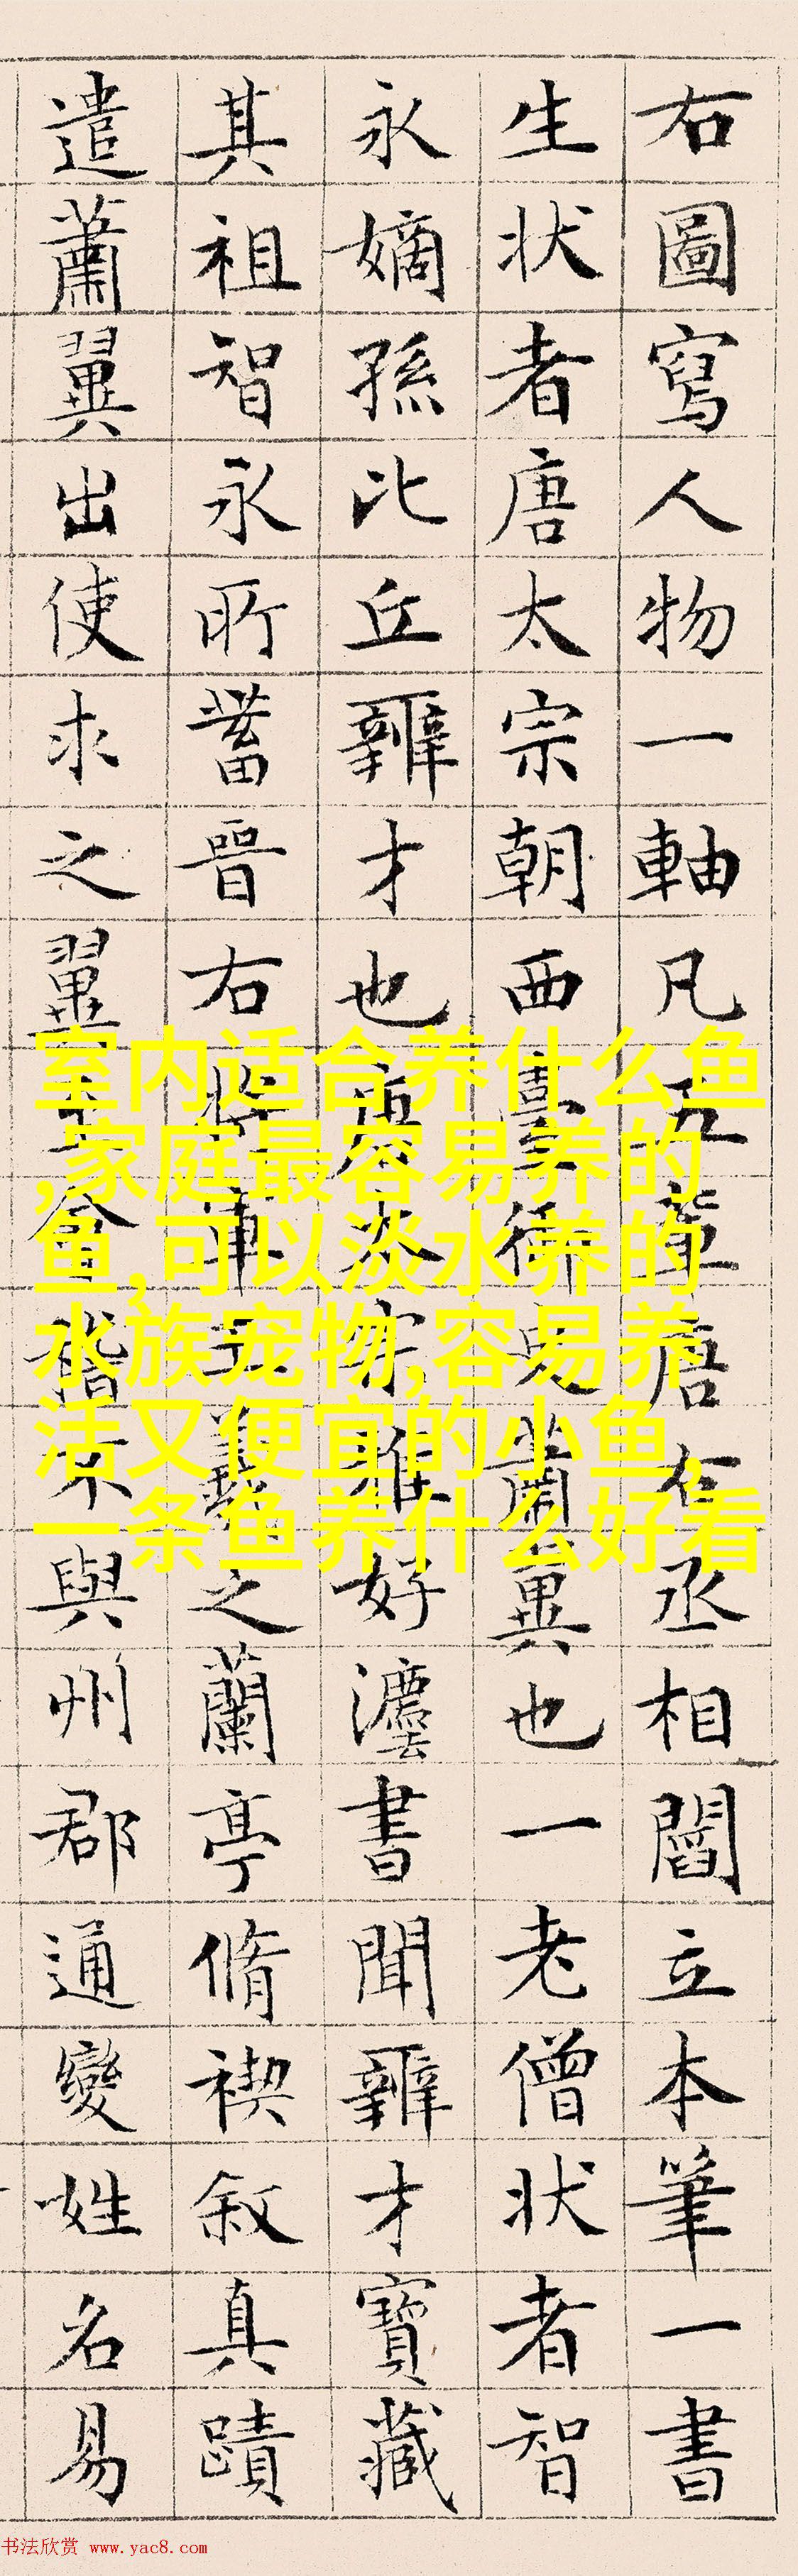 右圖寫人物一軸凡五輩唐右丞相閻立本筆一書
生状者唐太宗朝西臺御史蕭翼也一老僧状者智
永嫡孫比丘辯才也唐太宗雅好灋書聞辯才寶藏
其祖智永所蓄晉右將軍王羲之蘭亭脩禊叙真蹟
遣蕭翼出使求之翼至會稽不與州郡通變姓名易
室内适合养什么鱼
,家庭最容易养的
鱼,可以淡水养的
水族宠物,容易养
活又便宜的小鱼,
一条鱼养什么好看
书法欣赏 www.yac8.com